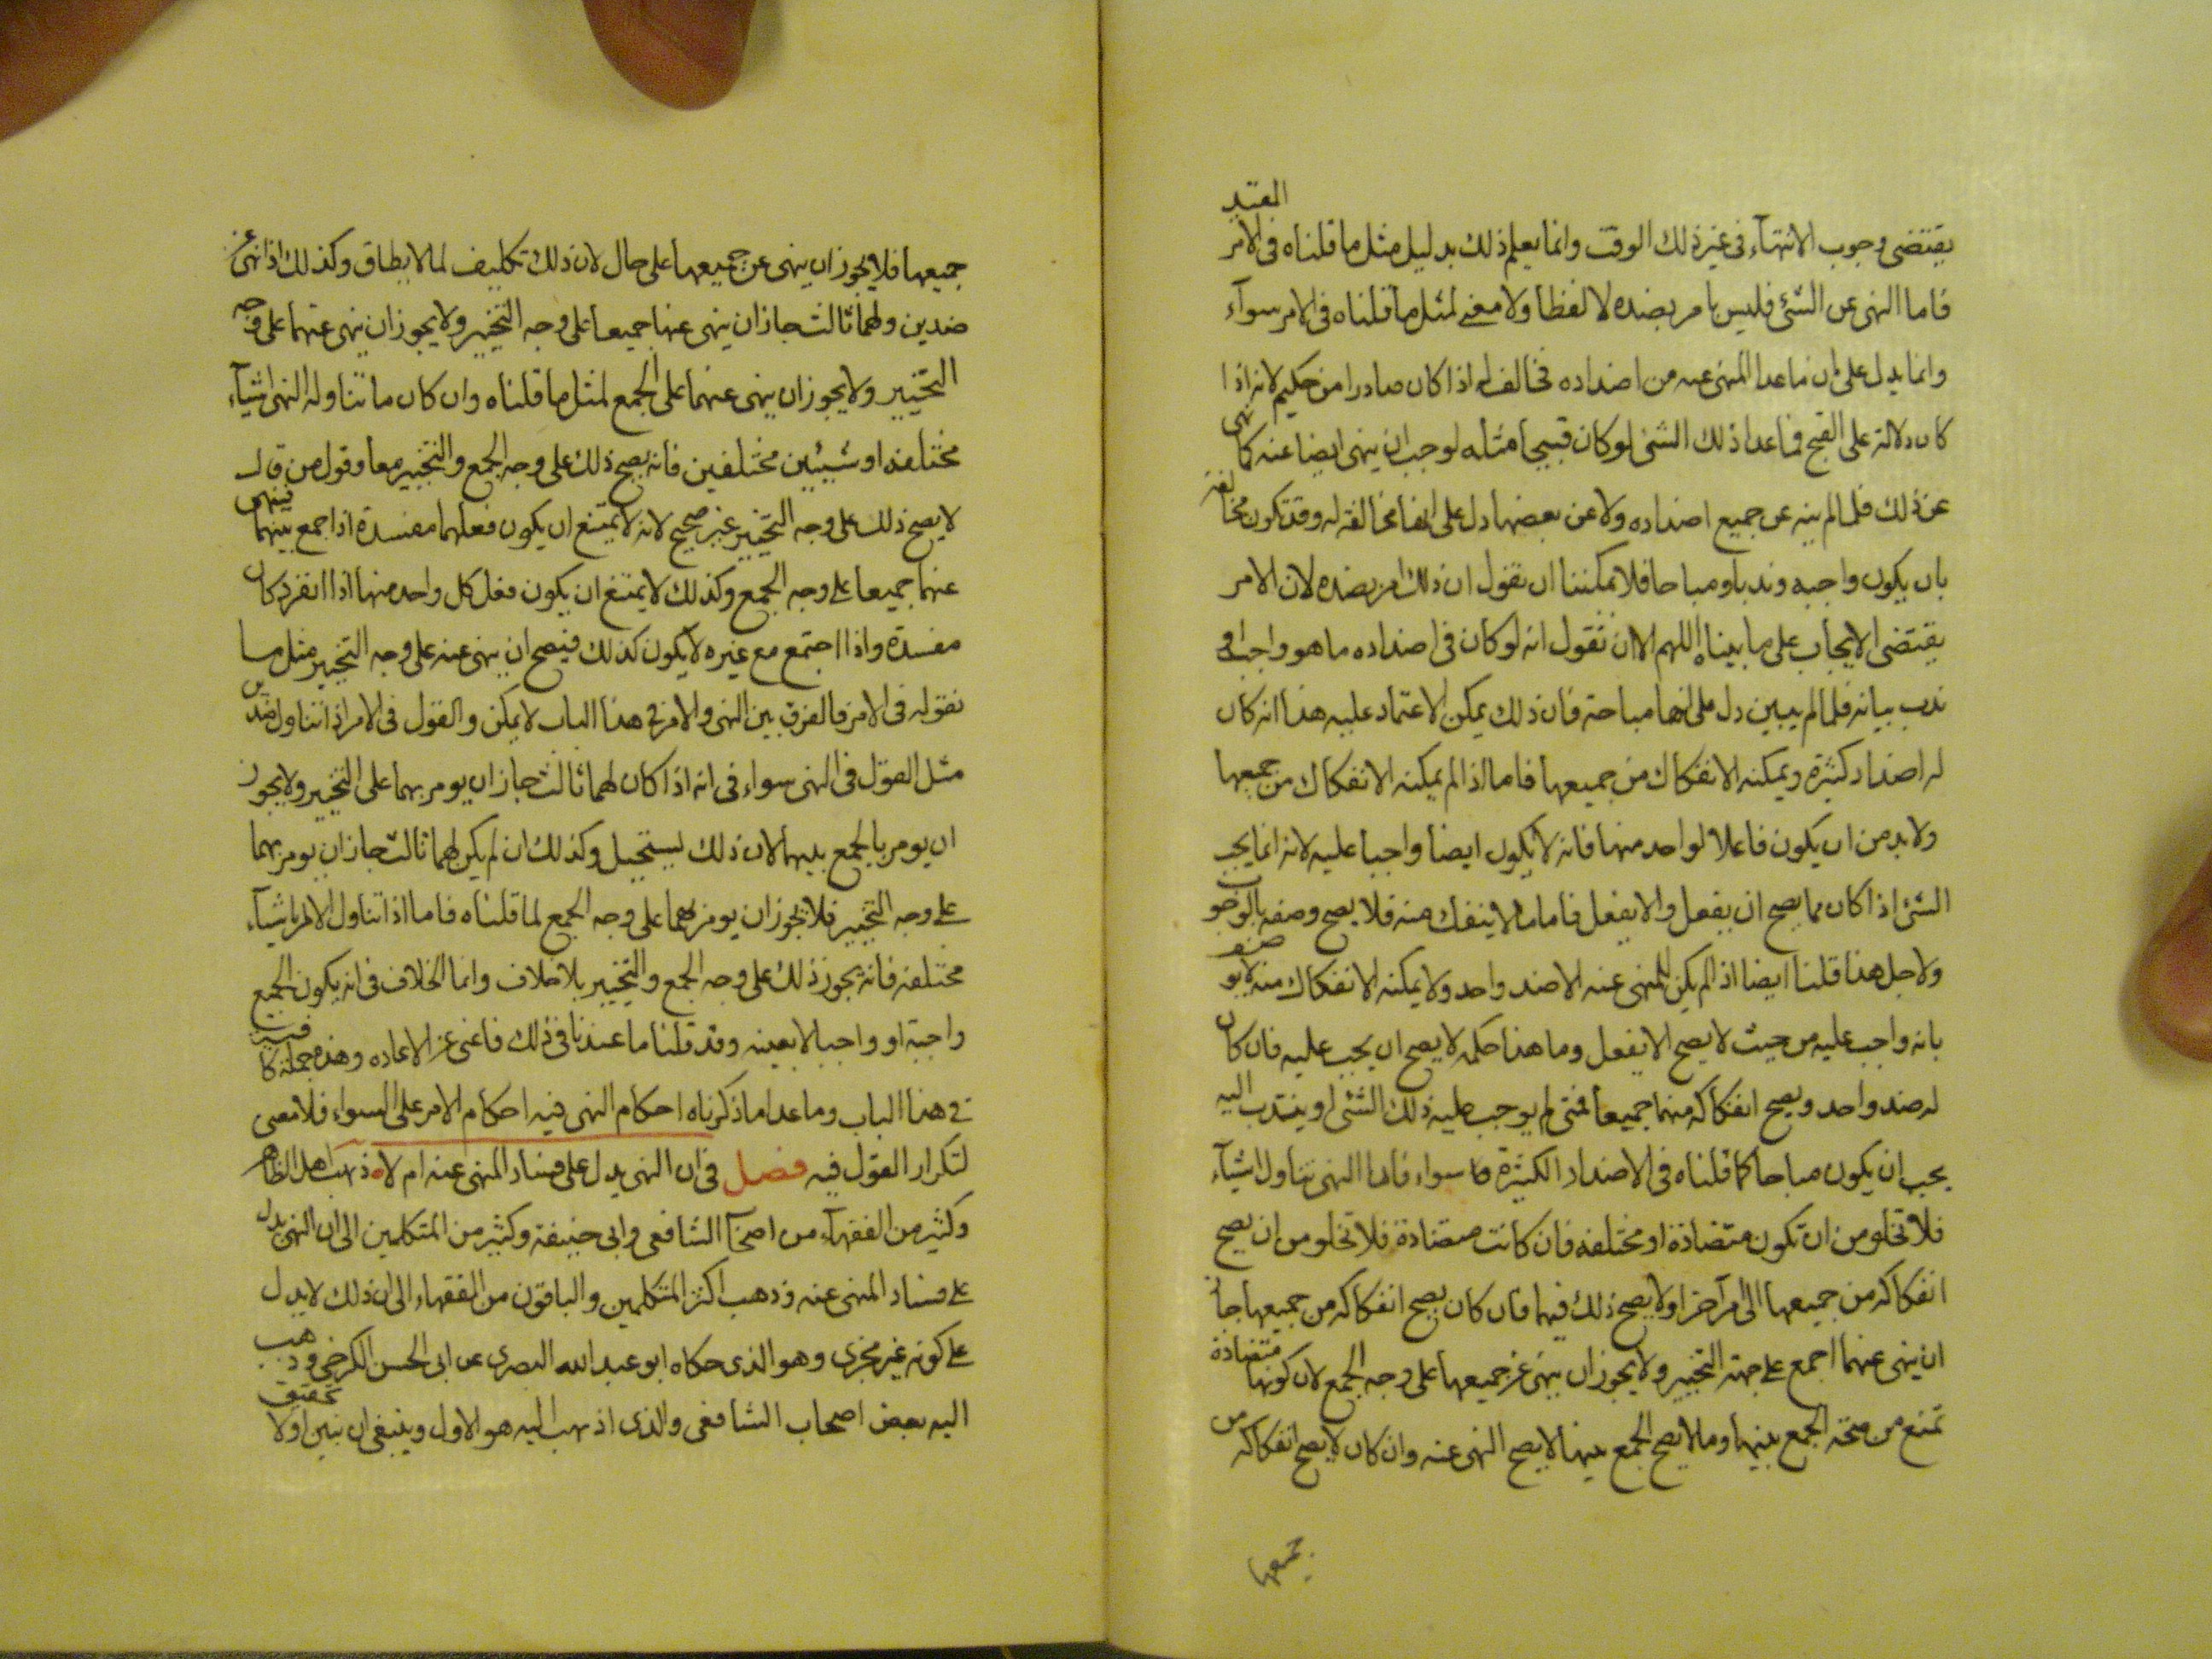 المقيد
يقتضى وجوب الانتهآء فى غير ذلك الوقت وانما يعلم ذلك بدليل مثل ما قلناه فى الامر
فاما النهى عن الشئ فليس بامر بضده لا لفظا ولا معنى لمثل ما قلناه فى الامر سوآء
وانما يدل على ان ما عدا المنهى عنه من اضداده مخالف له اذا كان صادرا من حكيم لانه اذا
كان دلالة على القبح فما عدا ذلك الشئ لو كان قبيحا مثله لوجب ان ينهى ايضا عنه كما نهى
عن ذلك فلما لم ينه عن جميع اضداده ولا عن بعضها دل على انها مخالفة له وقد تكون مخالفة
بان يكون واجبه وندبا ومباحا فلا يمكننا ان نقول ان ذلك امر بضده لان الامر
يقتضى الايجاب على ما بيناه اللهم الا ان نقول انه لو كان فى اضداده ما هو واجب او
ندب بيانه فلما لم يبين دل على انها مباحة فان ذلك يمكن الاعتماد عليه هذا ان كان
له اضداد كثيرة ويمكنه الانفكاك من جميعها فاما اذا لم يمكنه الانفكاك من جميعها
ولا بد من ان يكون فاعلا لواحد منها فانه لا يكون ايضا واجبا عليه لانه انما يجب
الشئ اذا كان مما يصح ان يفعل والا يفعل فاما ما لا ينفك منه فلا يصح وصفه بالوجوب
ولاجل هذا قلنا ايضا اذا لم يكن للمنهى عنه الا ضد واحد ولا يمكنه الانفكاك منه لا يوصف
بانه واجب عليه من حيث لا يصح الا يفعل وما هذا حكمه لا يصح ان يجب عليه فان كان
له ضد واحد ويصح انفكاكه منهما جميعا فمتى لم يوجب عليه ذلك الشئ او ينتدب اليه
يجب ان يكون مباحا كما قلناه فى الاضداد الكثيرة سواء فاما النهى تناول اشيآء
فلا تخلو من ان تكون متضادة او مختلفه فان كانت متضادة فلا تخلو من ان يصح
انفكاكه من جميعها الى امر آخر او لا يصح ذلك فيها فان كان يصح انفكاكه من جميعها جاز
ان ينهى عنها اجمع على جهة التخيير ولا يجوز ان ينهى عن جميعها على وجه الجمع لان كونها متضادة
تمنع من صحة الجمع بينها وما لا يصح الجمع بينها لا يصح النهى عنه وان كان لا يصح انفكاكه من
جميعها
جميعها فلا يجوز ان ينهى عن جميعها على حال لان ذلك تكليف لما لا يطاق وكذلك اذا نهى عن
ضدين ولهما ثالث جاز ان ينهى عنها جميعا على وجه التخيير ولا يجوز ان ينهى عنهما على وجه
التخيير ولا يجوز ان ينهى عنهما على الجمع لمثل ما قلناه وان كان ما تناوله النهى اشيآء
مختلفه او شيئين مختلفين فانه يصح ذلك على وجه الجمع والتخيير معا وقول من قال
لا يصح ذلك على وجه التخيير غير صحيح لانه لا يمتنع ان يكون فعلهما مفسدة اذا جمع بينهما فينهى
عنها جميعا على وجه الجمع وكذلك لا يمتنع ان يكون فعل كل واحد منها اذا انفرد كان
مفسدة واذا اجتمع مع غيره لا يكون كذلك فيصح ان ينهى عنه على وجه التخيير مثل ما
نقوله فى الامر فالفرق بين النهى والامر فى هذا الباب لا يمكن والقول فى الامر اذا تناول ضدين
مثل القول فى النهى سواء فى انه اذا كان لهما ثالث جاز ان يومر بهما على التخيير ولا يجوز
ان يومر بالجمع بينهما لان ذلك يستحيل وكذلك ان لم يكن لهما ثالث جاز ان يومر بهما
على وجه التخيير فلا يجوز ان يومر بهما على وجه الجمع لما قلناه فاما اذا تناول الامر اشيآء
مختلفه فانه يجوز ذلك على وجه الجمع والتخيير بلا خلاف وانما الخلاف فى انه يكون الجميع
واجبة او واجبا لا بعينه وقد قلنا ما عندنا فى ذلك فاغنى عن الاعاده وهذه جملة كافية
فى هذا الباب وما عدا ما ذكرناه احكام النهى فيه احكام الامر على السواء فلا معنى
لتكرار القول فيه فصل فى ان النهى يدل على فساد المنهى عنه ام لا ه ذهب اهل الظاهر
وكثير من الفقهآء من اصحاب الشافعى وابى حنيفة وكثير من المتكلمين الى ان النهى يدل
على فساد المنهى عنه وذهب اكثر المتكلمين والباقون من الفقهاء الى ان ذلك لا يدل
على كونه غير مجزى وهو الذى حكاه ابو عبد الله البصرى عن ابى الحسن الكرخى وذهب
اليه بعض اصحاب الشافعى والذى اذهب اليه هو الاول وينبغى ان نبين اولا تحقيق